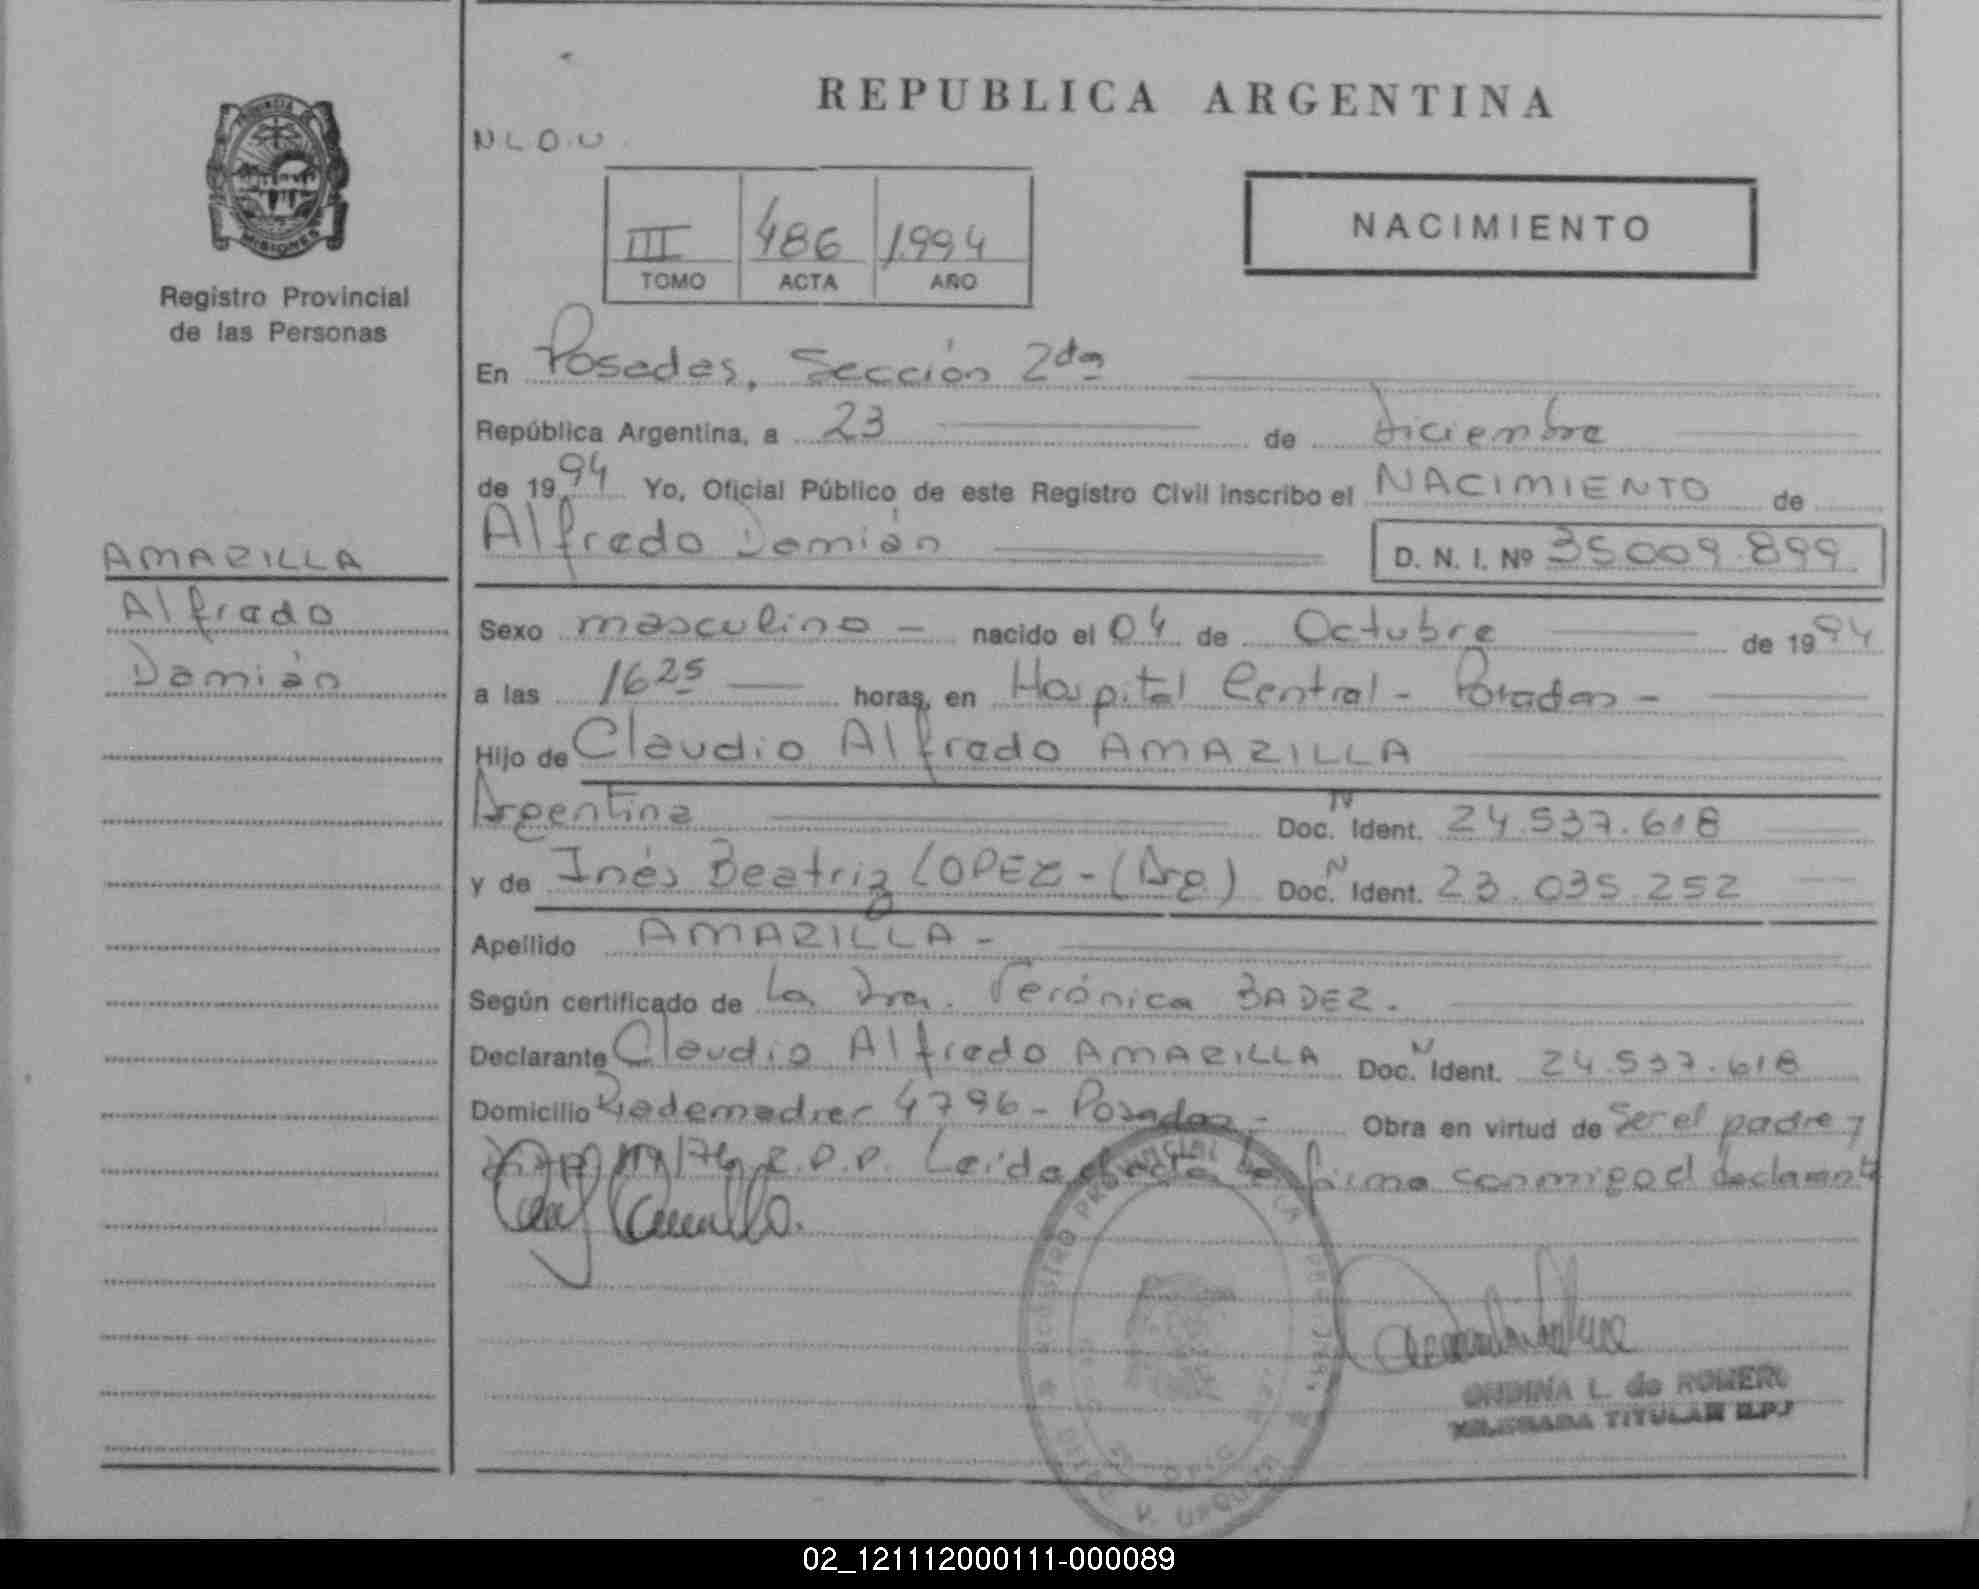 REPUBLICA ARGENTINA
N L O.U
PROVINCIA
MISIONES
Registro Provincial
de las Personas
III 486 1.994
TOMO ACTA AÑO
NACIMIENTO
En Posadas, Sección 2da
República Argentina, a 23 de diciembre
de 1994 Yo, Oficial Público de este Registro Civil inscribo el NACIMIENTO de
Alfredo Damián D. N. I. Nº 35009.899
AMARILLA
Alfredo
Damián
Sexo masculino - nacido el 04 de Octubre de 1994
a las 1625 horas, en Hospital Central - Posadas -
Hijo de Claudio Alfredo AMARILLA
Argentina Doc. N Ident. 24.537.618
y de Inés Beatriz LOPEZ - (Arg) Doc. N Ident. 23.035.252
Apellido AMARILLA -
Según certificado de La Dra. Verónica BADER.
Declarante Claudio Alfredo AMARILLA Doc. N Ident. 24.537.618
Domicilio Rademacher 4796 - Posadas - Obra en virtud de Ser el padre y
R.P.P. Leída el acta la firma conmigo el declarante
REGISTRO PROVINCIAL DE LAS
ONDINA L. de ROMERO
DELEGADA TITULAR R.P.P
02_121112000111-000089